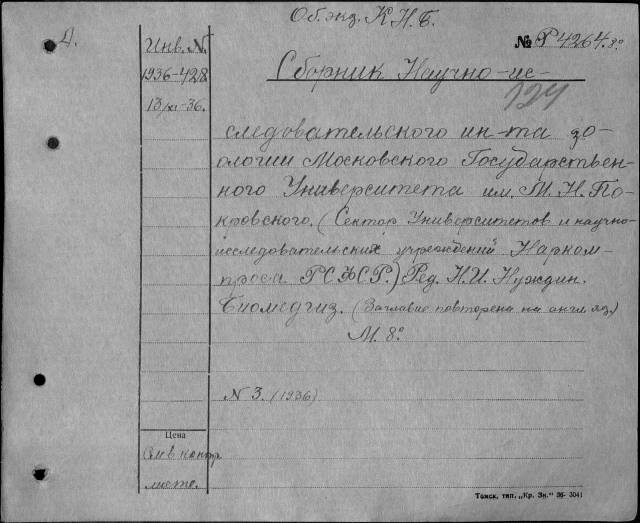 Об. энд. К.Н.Б.
Д.
Инв. №
1936-428
13/XI-36.
№ Р4264.8°
Сборник Научно-ис-
124
следовательского ин-та зо-
ологии Московского Государствен-
ного Университета им. М.Н. По-
кровского. (Сектор Университетов и научно-
исследовательских учреждений Нарком-
проса РСФСР.) Ред. Н.И. Нуждин.
Биомедгиз. (Заглавие повторена на англ яз.)
М. 8°
N 3. (1936)
Цена
См в контр
листе.
Томск, тип. „Кр. Зн." 36- 3041